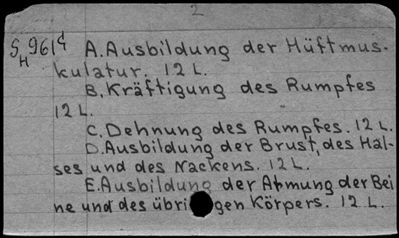 2
A. Ausbildung der Hüftmus-
kulatur. 12 L.
B. Kräftigung des Rumpfes
12 L.
C. Dehnung des Rumpfes. 12 L.
D. Ausbildung der Brust, des Hal-
ses und des Nackens. 12 L.
E. Ausbildung der Atmung der Bei
ne und des übrigen Körpers. 12 L.